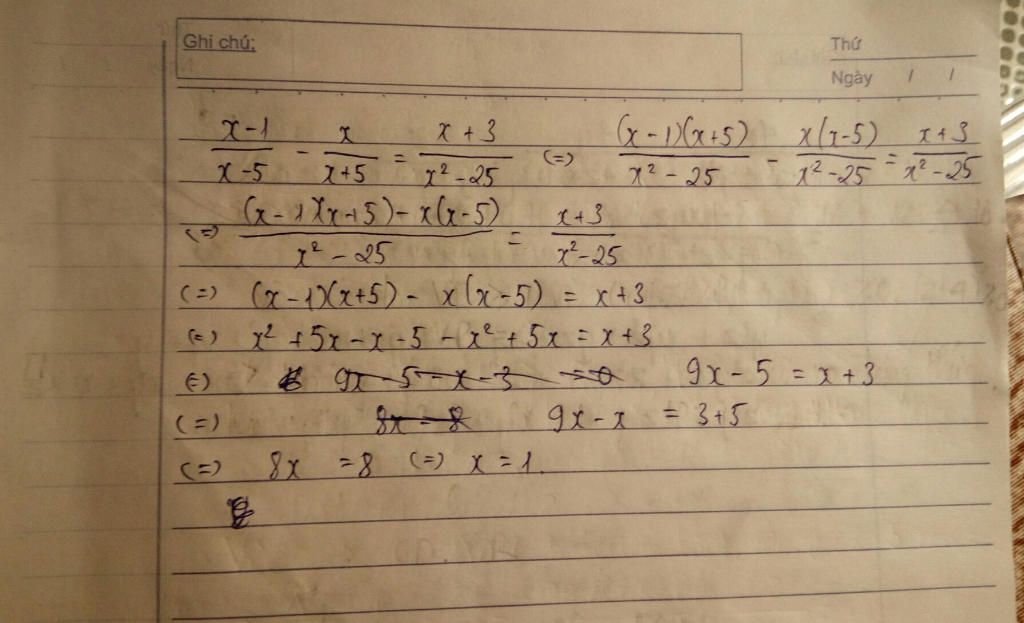 Ghi chú:
Thứ
Ngày / /
\frac{x-1}{x-5} - \frac{x}{x+5} = \frac{x+3}{x^2-25} (=) \frac{(x-1)(x+5)}{x^2-25} - \frac{x(x-5)}{x^2-25} = \frac{x+3}{x^2-25}
(=) \frac{(x-1)(x+5)-x(x-5)}{x^2-25} = \frac{x+3}{x^2-25}
(=) (x-1)(x+5) - x(x-5) = x+3
(=) x² + 5x - x - 5 - x² + 5x = x+3
(=) 9x - 5 - x - 3 = 0 9x - 5 = x+3
(=) 8x = 8 9x - x = 3+5
(=) 8x = 8 (=) x = 1.